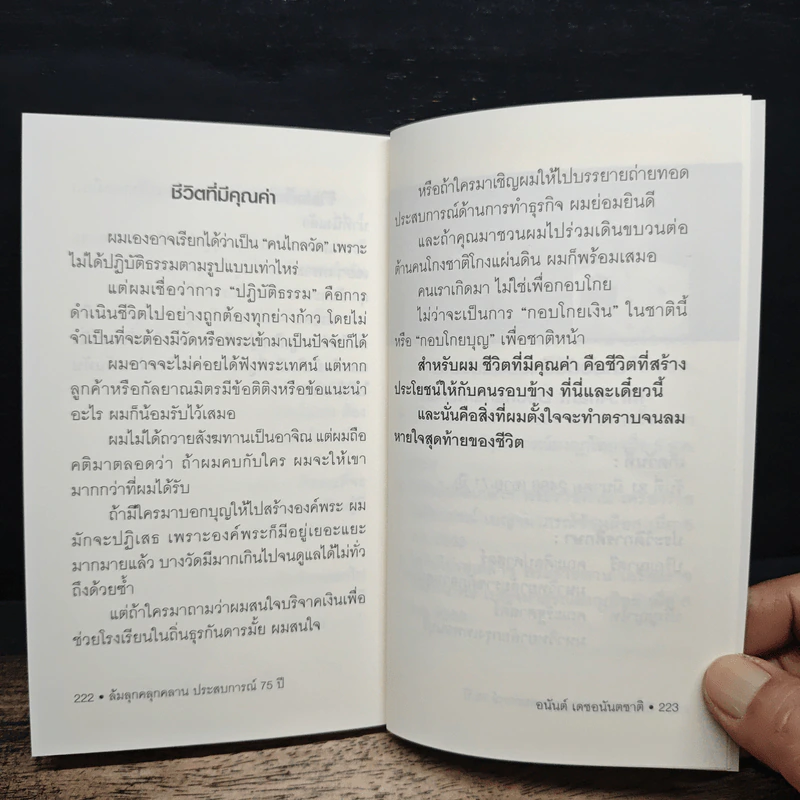 ชีวิตที่มีคุณค่า
ผมเองอาจเรียกได้ว่าเป็น “คนไกลวัด” เพราะ
ไม่ได้ปฏิบัติธรรมตามรูปแบบเท่าไหร่
แต่ผมเชื่อว่าการ “ปฏิบัติธรรม” คือการ
ดำเนินชีวิตไปอย่างถูกต้องทุกย่างก้าว โดยไม่
จำเป็นที่จะต้องมีวัดหรือพระเข้ามาเป็นปัจจัยก็ได้
ผมอาจจะไม่ค่อยได้ฟังพระเทศน์ แต่หาก
ลูกค้าหรือกัลยาณมิตรมีข้อติติงหรือข้อแนะนำ
อะไร ผมก็น้อมรับไว้เสมอ
ผมไม่ได้ถวายสังฆทานเป็นอาจิณ แต่ผมถือ
คติมาตลอดว่า ถ้าผมคบกับใคร ผมจะให้เขา
มากกว่าที่ผมได้รับ
ถ้ามีใครมาบอกบุญให้ไปสร้างองค์พระ ผม
มักจะปฏิเสธ เพราะองค์พระก็มีอยู่เยอะแยะ
มากมายแล้ว บางวัดมีมากเกินไปจนดูแลได้ไม่ทั่ว
ถึงด้วยซ้ำ
แต่ถ้าใครมาถามว่าผมสนใจบริจาคเงินเพื่อ
ช่วยโรงเรียนในถิ่นธุรกันดารมั้ย ผมสนใจ
222 • ล้มลุกคลุกคลาน ประสบการณ์ 75 ปี
หรือถ้าใครมาเชิญผมให้ไปบรรยายถ่ายทอด
ประสบการณ์ด้านการทำธุรกิจ ผมย่อมยินดี
และถ้าคุณมาชวนผมไปร่วมเดินขบวนต่อ
ต้านคนโกงชาติโกงแผ่นดิน ผมก็พร้อมเสมอ
คนเราเกิดมา ไม่ใช่เพื่อกอบโกย
ไม่ว่าจะเป็นการ “กอบโกยเงิน” ในชาตินี้
หรือ “กอบโกยบุญ” เพื่อชาติหน้า
สำหรับผม ชีวิตที่มีคุณค่า คือชีวิตที่สร้าง
ประโยชน์ให้กับคนรอบข้าง ที่นี่และเดี๋ยวนี้
และนั่นคือสิ่งที่ผมตั้งใจจะทำตราบจนลม
หายใจสุดท้ายของชีวิต
อนันต์ เดชอนันตชาติ • 223